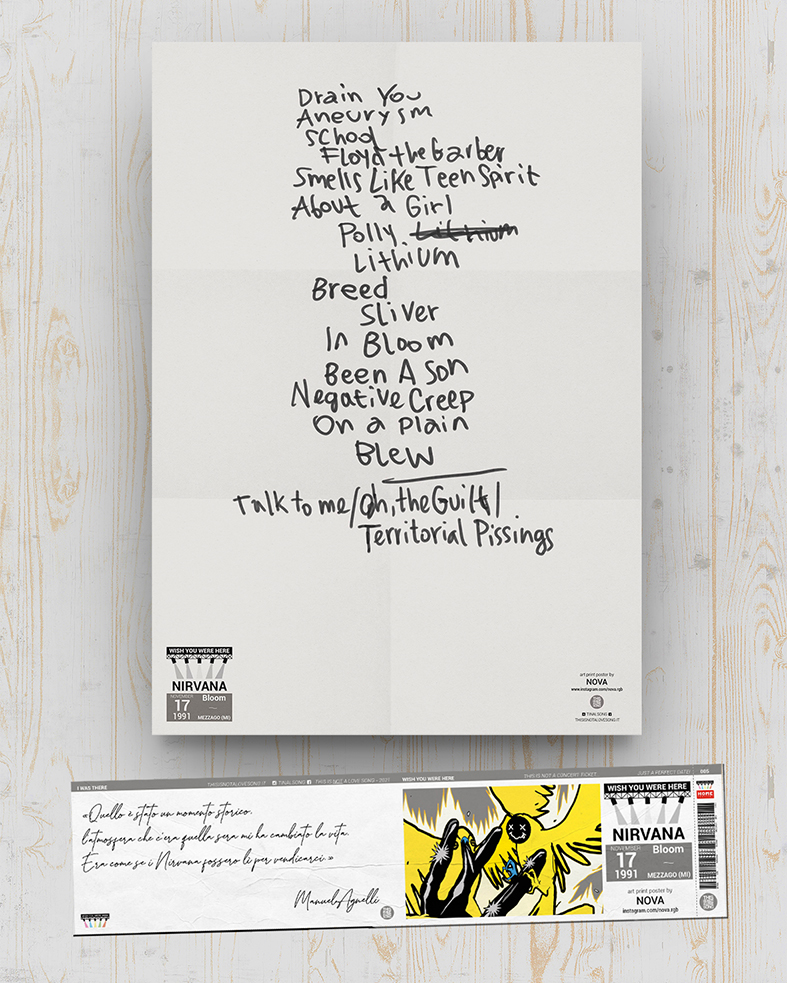 Drain You
Aneurysm
School
Floyd the Barber
Smells Like Teen Spirit
About a Girl
Polly Lithium
Lithium
Breed
Sliver
In Bloom
Been A Son
Negative Creep
On a Plain
Blew
Talk to me/Oh, the Guilt/
Territorial Pissings
WISH YOU WERE HERE
NIRVANA
NOVEMBER
17
1991
Bloom
MEZZAGO (MI)
art print poster by
NOVA
www.instagram.com/nova.rgb
TINALSONG
THISISNOTALOVESONG.IT
I WAS THERE
THISISNOTALOVESONG.IT TINALSONG THIS IS NOT A LOVE SONG - 2021
WISH YOU WERE HERE
THIS IS NOT A CONCERT TICKET
JUST A PERFECT DATE!
005
«Quello è stato un momento storico.
L'atmosfera che c'era quella sera mi ha cambiato la vita.
Era come se i Nirvana fossero lì per vendicarci.»
Manuel Agnelli
HOME
NIRVANA
NOVEMBER
17
1991
Bloom
MEZZAGO (MI)
art print poster by
NOVA
instagram.com/nova.rgb